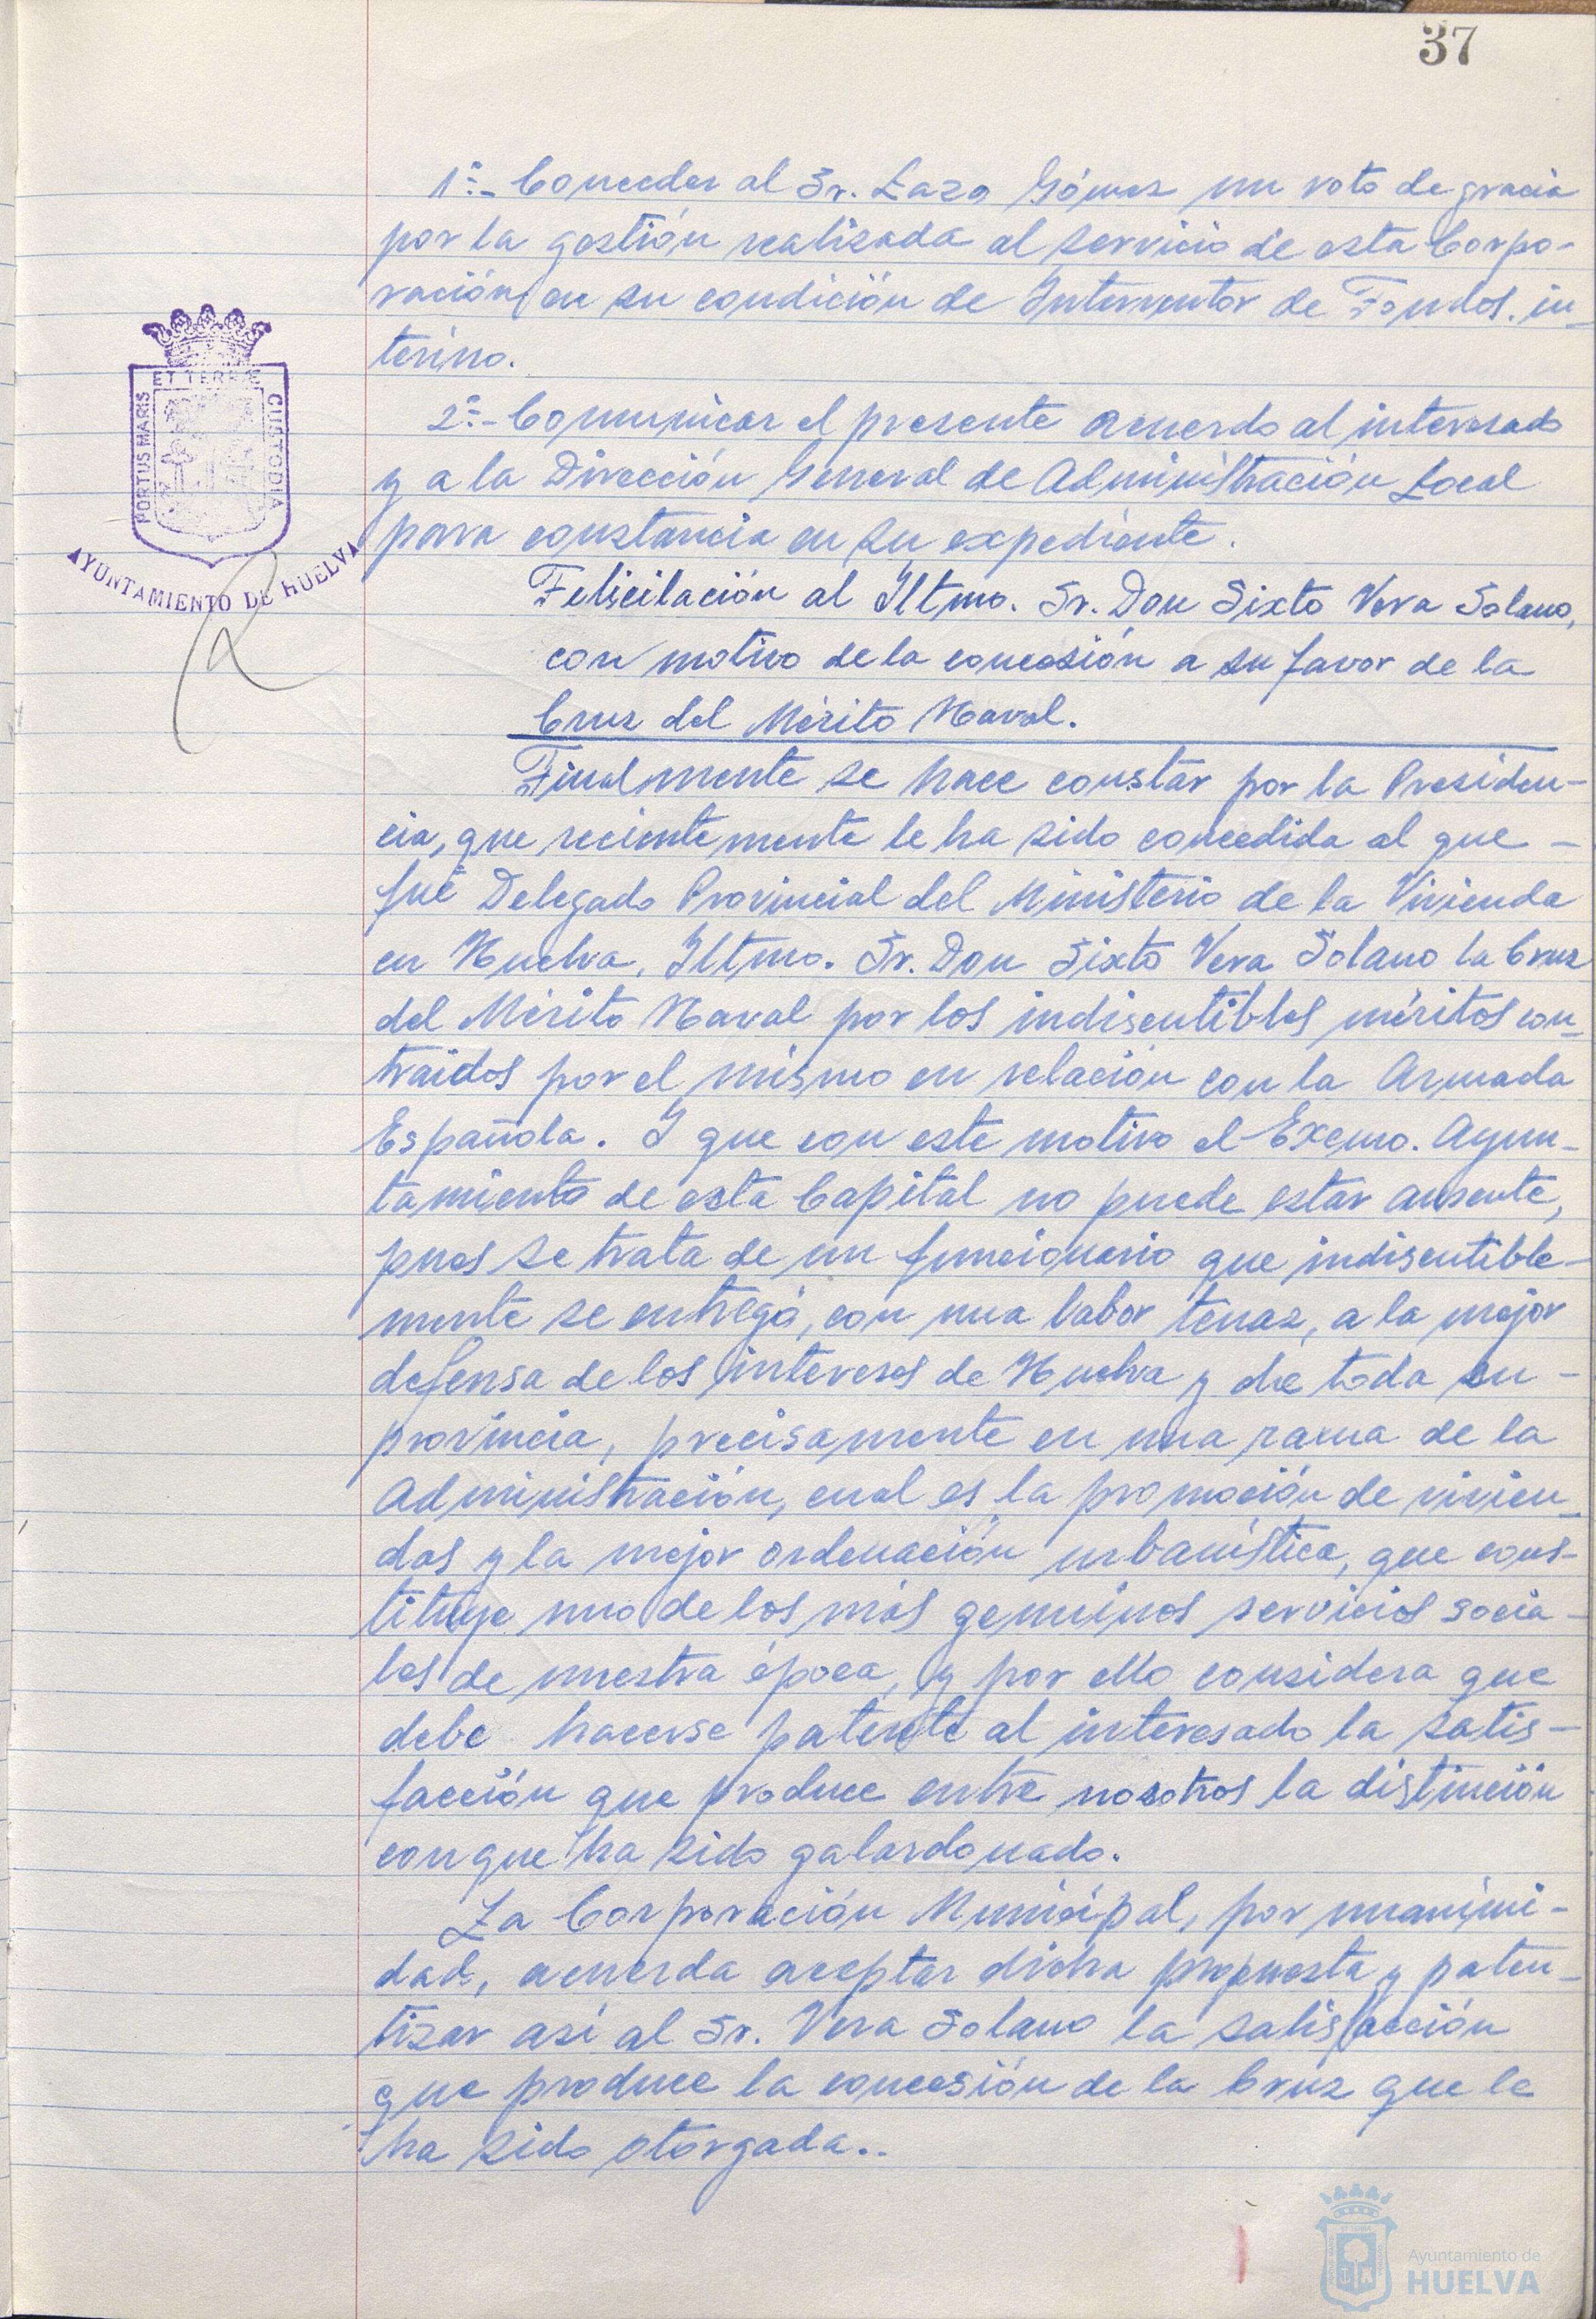 37
1º.- Conceder al Sr. Lazo Gómez un voto de gracia
por la gestión realizada al servicio de esta Corpo-
ración, en su condición de Interventor de Fondos, in-
terino.
2º.- Comunicar el presente acuerdo al interesado
y a la Dirección General de Administración Local
para constancia en su expediente.
Felicitación al Iltmo. Sr. Don Sixto Vera Solano,
con motivo de la concesión a su favor de la
Cruz del Mérito Naval.
Finalmente se hace constar por la Presiden-
cia, que recientemente le ha sido concedida al que -
fué Delegado Provincial del Ministerio de la Vivienda
en Huelva, Iltmo. Sr. Don Sixto Vera Solano la Cruz
del Mérito Naval por los indiscutibles méritos con-
traidos por el mismo en relación con la Armada
Española. Y que con este motivo el Excmo. Ayun-
tamiento de esta Capital no puede estar ausente,
pues se trata de un funcionario que indiscutible-
mente se entregó, con una labor tenaz, a la mejor
defensa de los intereses de Huelva y de toda su -
provincia, precisamente en una rama de la
Administración, cual es la promoción de vivien-
das y la mejor ordenación urbanística, que cons-
tituye uno de los más genuinos servicios socia-
les de nuestra época, y por ello considera que
debe hacerse patente al interesado la satis-
facción que produce entre nosotros la distinción
con que ha sido galardonado.
La Corporación Municipal, por unanimi-
dad, acuerda aceptar dicha propuesta y paten-
tizar así al Sr. Vera Solano la satisfacción
que produce la concesión de la Cruz que le
ha sido otorgada..
PORTUS MARIS
ET TERRAE
CUSTODIA
AYUNTAMIENTO DE HUELVA
Ayuntamiento de
HUELVA